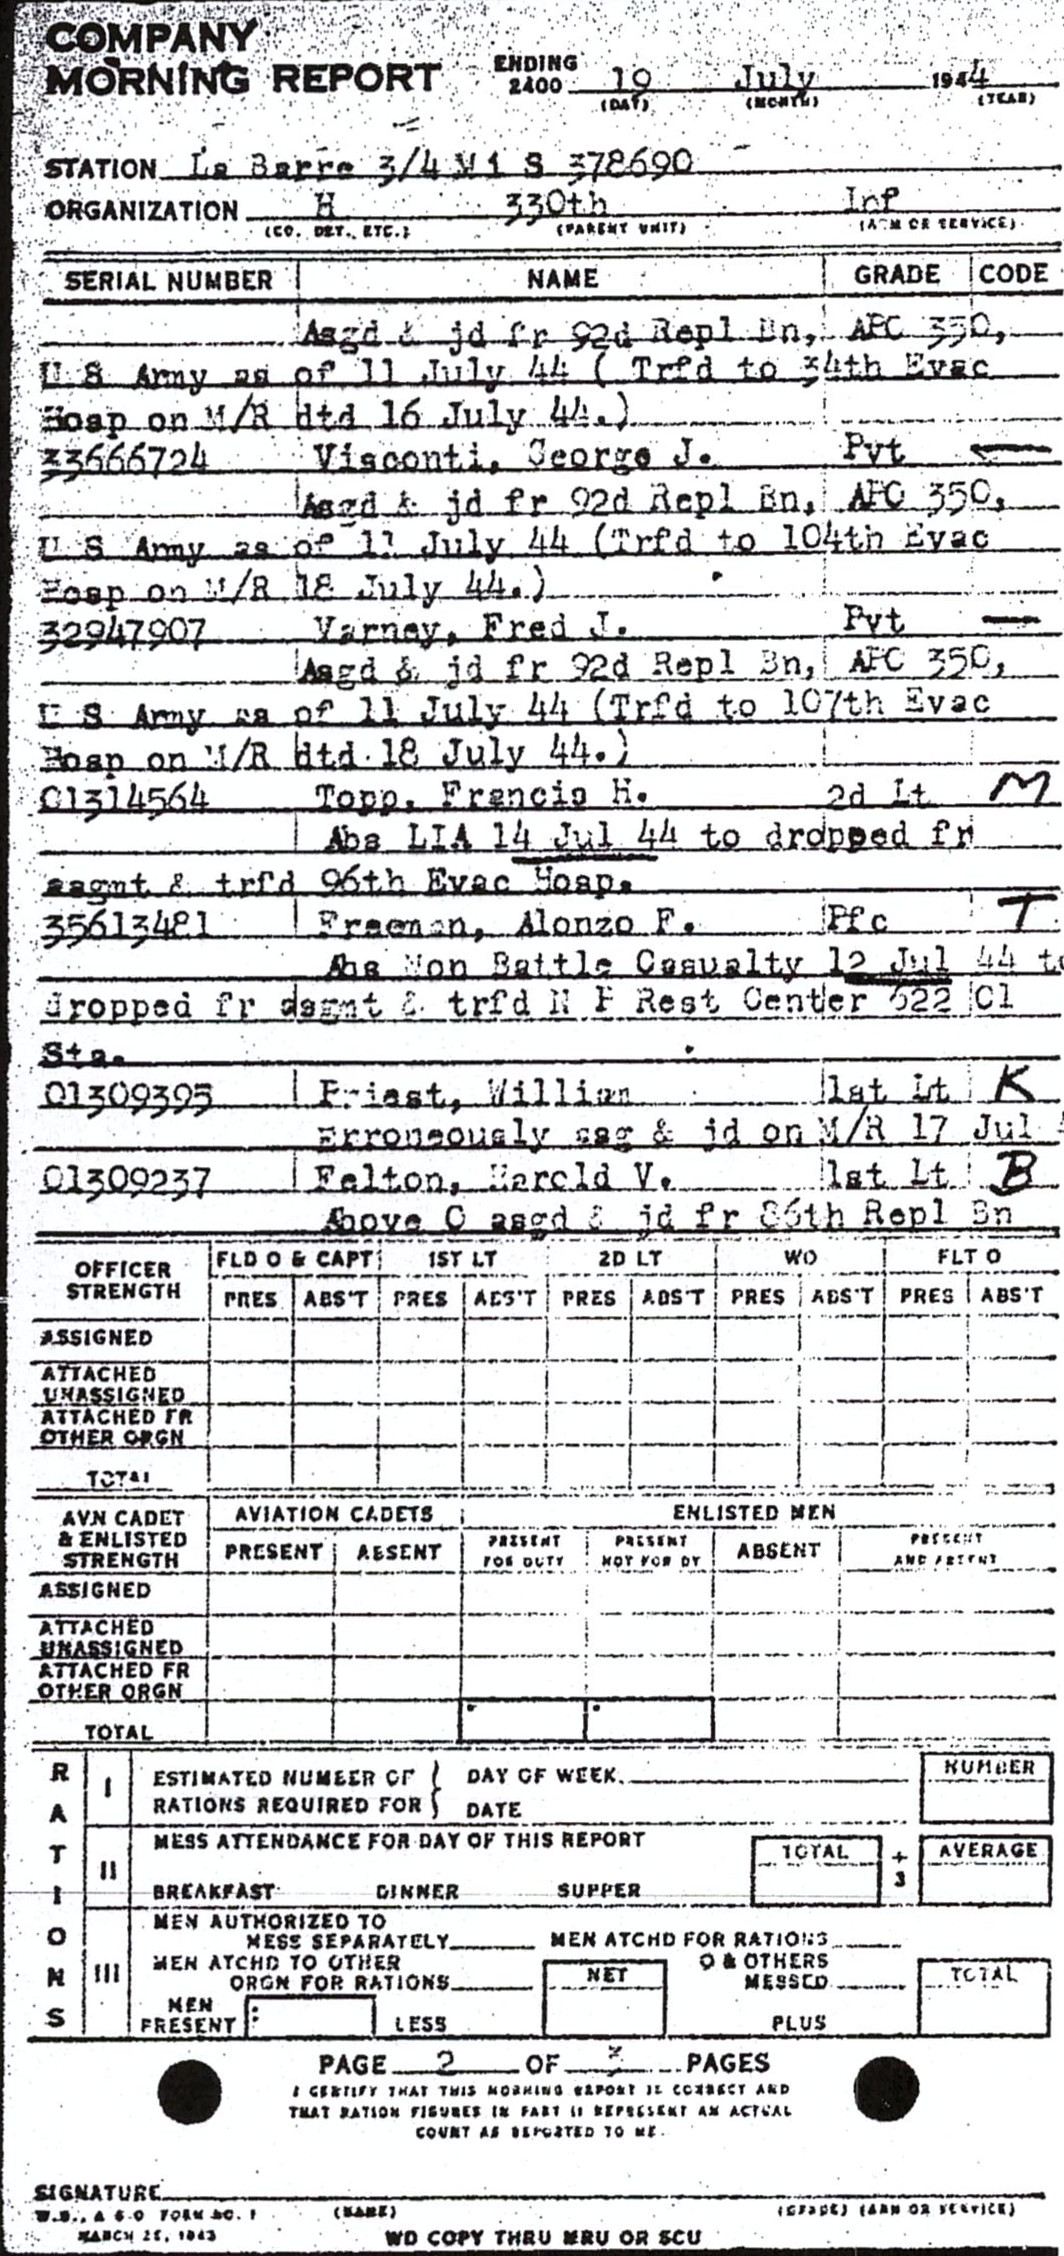 COMPANY
MORNING REPORT ENDING 2400 19 July 1944
(DAY) (MONTH) (YEAR)
STATION La Barre 3/4 Mi S 378690
ORGANIZATION H 330th Inf
(CO. DET., ETC.) (PARENT UNIT) (ARM OR SERVICE)
SERIAL NUMBER NAME GRADE CODE
Asgd & jd fr 92d Repl Bn, APO 350,
U S Army as of 11 July 44 ( Trfd to 34th Evac
Hosp on M/R dtd 16 July 44.)
33666724 Visconti, George J. Pvt —
Asgd & jd fr 92d Repl Bn, APO 350,
U S Army as of 11 July 44 (Trfd to 104th Evac
Hosp on M/R 18 July 44.)
32947907 Varney, Fred J. Pvt —
Asgd & jd fr 92d Repl Bn, APO 350,
U S Army as of 11 July 44 (Trfd to 107th Evac
Hosp on M/R dtd 18 July 44.)
01314564 Topp, Francis H. 2d Lt M
Abs LIA 14 Jul 44 to dropped fr
asgmt & trfd 96th Evac Hosp.
35613481 Freeman, Alonzo F. Pfc T
Abs Non Battle Casualty 12 Jul 44 to
dropped fr asgmt & trfd N P Rest Center 622 Cl
Sta.
01309395 Priest, William 1st Lt K
Erroneously asg & jd on M/R 17 Jul
01309237 Felton, Harold V. 1st Lt B
Above O asgd & jd fr 86th Repl Bn
OFFICER STRENGTH FLD O & CAPT 1ST LT 2D LT WO FLT O
PRES ABS'T PRES ABS'T PRES ABS'T PRES ABS'T PRES ABS'T
ASSIGNED
ATTACHED
UNASSIGNED
ATTACHED FR
OTHER ORGN
TOTAL
AVN CADET & ENLISTED STRENGTH AVIATION CADETS ENLISTED MEN
PRESENT ABSENT PRESENT FOR DUTY PRESENT NOT FOR DY ABSENT PRESENT AND ABSENT
ASSIGNED
ATTACHED
UNASSIGNED
ATTACHED FR
OTHER ORGN
TOTAL
RATIONS
I ESTIMATED NUMBER OF DAY OF WEEK NUMBER
RATIONS REQUIRED FOR DATE
II MESS ATTENDANCE FOR DAY OF THIS REPORT TOTAL ÷ 3 AVERAGE
BREAKFAST DINNER SUPPER
III MEN AUTHORIZED TO
MESS SEPARATELY MEN ATCHD FOR RATIONS
MEN ATCHD TO OTHER O & OTHERS
ORGN FOR RATIONS NET MESSED TOTAL
MEN PRESENT LESS PLUS
PAGE 2 OF 3 PAGES
I CERTIFY THAT THIS MORNING REPORT IS CORRECT AND
THAT RATION FIGURES IN PART II REPRESENT AN ACTUAL
COUNT AS REPORTED TO ME.
SIGNATURE
W.D., A G O FORM NO. 1 (NAME) (GRADE) (ARM OR SERVICE)
MARCH 25, 1943 WD COPY THRU MRU OR SCU